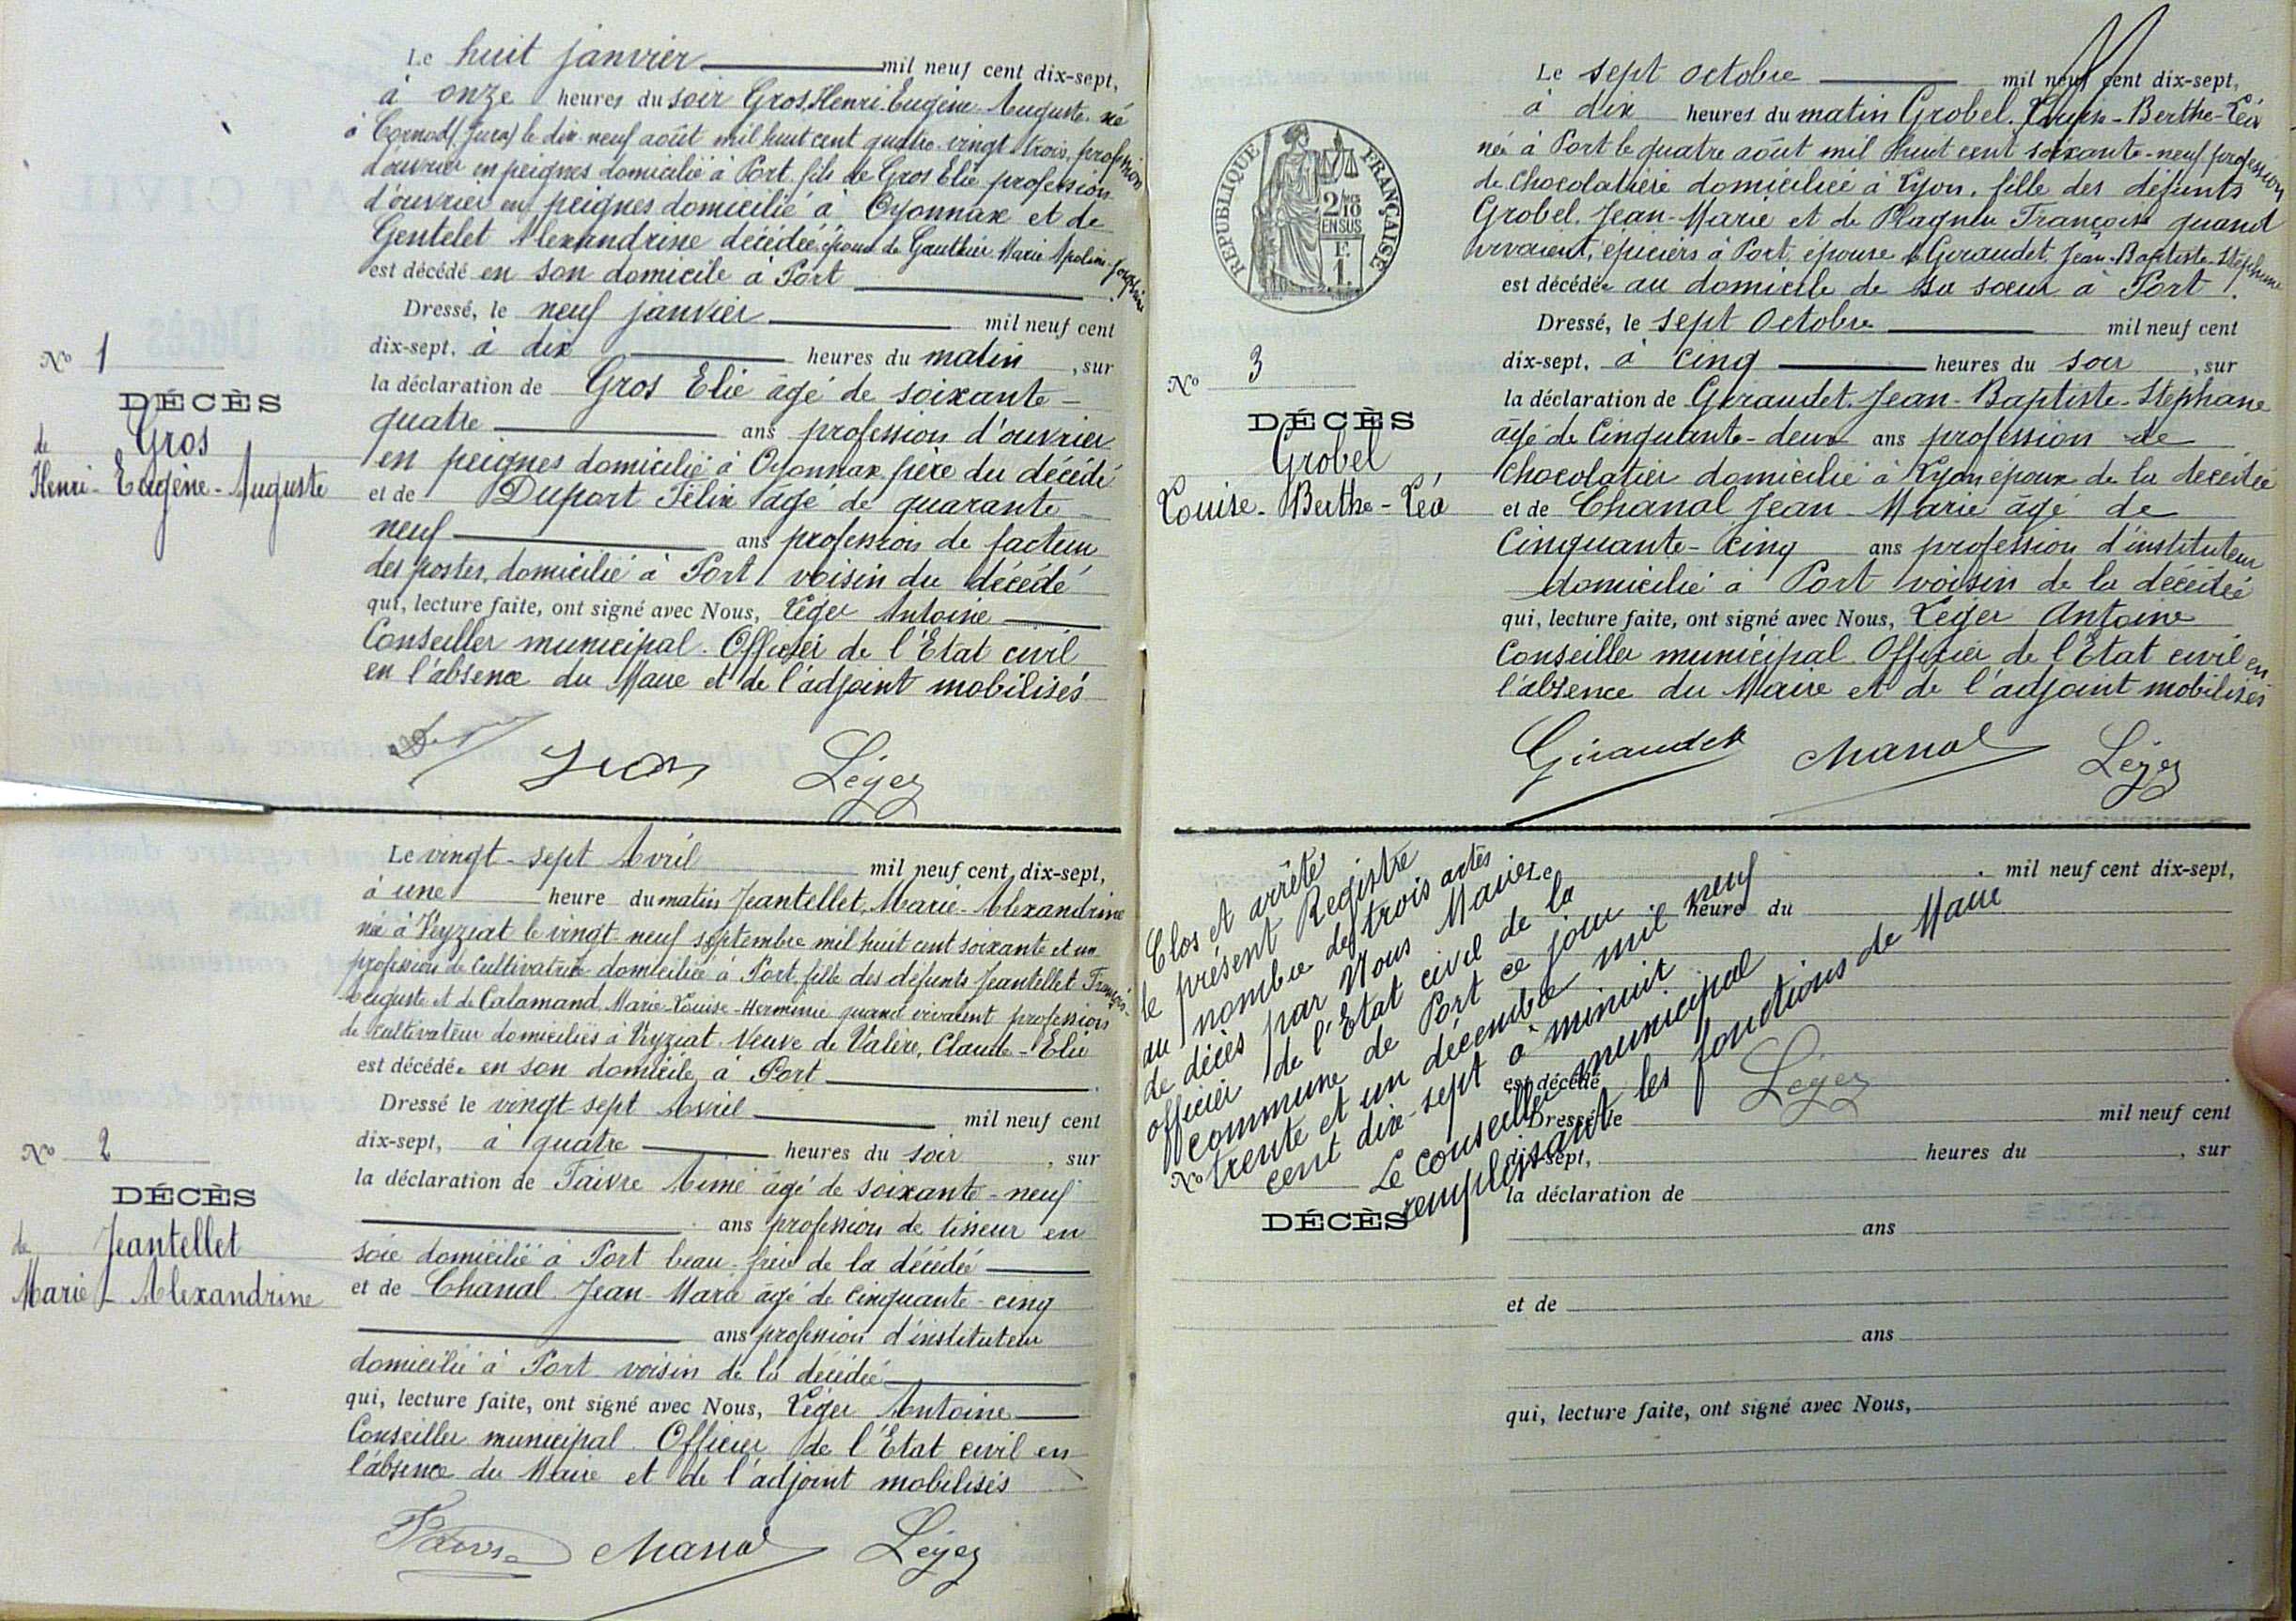 Le huit janvier mil neuf cent dix-sept,
à onze heures du soir Gros, Henri Eugène Auguste né
à Cornod (Jura) le dix neuf août mil huit cent quatre vingt trois, profession
d'ouvrier en peignes domicilié à Port fils de Gros Elie profession
d'ouvrier en peignes domicilié à Oyonnax et de
Gentelet Alexandrine décédée, époux de Gauthier Marie Apoline Joséphine
est décédé en son domicile à Port
Dressé, le neuf janvier mil neuf cent
dix-sept, à dix heures du matin, sur
la déclaration de Gros Elie âgé de soixante-
quatre ans profession d'ouvrier
en peignes domicilié à Oyonnax père du décédé
et de Duport Félix âgé de quarante
neuf ans profession de facteur
des postes, domicilié à Port voisin du décédé
qui, lecture faite, ont signé avec Nous, Léger Antoine
Conseiller municipal. Officier de l'Etat civil
en l'absence du Maire et de l'adjoint mobilisés
No 1
DÉCÈS
de Gros
Henri-Eugène-Auguste
Léger
Le vingt-sept Avril mil neuf cent dix-sept,
à une heure du matin Jeantellet, Marie-Alexandrine
née à Veyziat le vingt neuf septembre mil huit cent soixante et un
profession de cultivatrice domiciliée à Port, fille des défunts Jeantellet François-
Auguste et de Calamand Marie-Louise-Herminie quand vivaient profession
de cultivateur domiciliés à Veyziat. Veuve de Valère, Claude-Elie
est décédée en son domicile à Port.
Dressé le vingt-sept Avril mil neuf cent
dix-sept, à quatre heures du soir, sur
la déclaration de Faivre Aimé âgé de soixante-neuf
ans profession de tisseur en
soie domicilié à Port beau-frère de la décédée
et de Chanal Jean-Marie âgé de cinquante-cinq
ans profession d'instituteur
domicilié à Port voisin de la décédée
qui, lecture faite, ont signé avec Nous, Léger Antoine
Conseiller municipal. Officier de l'Etat civil en
l'absence du Maire et de l'adjoint mobilisés
No 2
DÉCÈS
de Jeantellet
Marie-Alexandrine
Faivre Chanal Léger
Le sept Octobre mil neuf cent dix-sept,
à dix heures du matin Grobel, Louise-Berthe-Léa
née à Port le quatre août mil huit cent soixante-neuf profession
de chocolatière domiciliée à Lyon, fille des défunts
Grobel, Jean-Marie et de Françoise quand
vivaient, épiciers à Port épouse de Geraudet Jean-Baptiste-Stéphane
est décédée au domicile de sa sœur à Port.
Dressé, le sept Octobre mil neuf cent
dix-sept, à cinq heures du soir, sur
la déclaration de Geraudet, Jean-Baptiste-Stéphane
âgé de Cinquante-deux ans profession de
Chocolatier domicilié à Lyon époux de la décédée
et de Chanal Jean-Marie âgé de
Cinquante-cinq ans profession d'instituteur
domicilié à Port voisin de la décédée
qui, lecture faite, ont signé avec Nous, Léger Antoine
Conseiller municipal. Officier de l'Etat civil en
l'absence du Maire et de l'adjoint mobilisés
RÉPUBLIQUE FRANÇAISE
2/10
EN SUS
F.
1.
No 3
DÉCÈS
Grobel
Louise-Berthe-Léa
Giraudet Chanal Léger
Clos et arrêté
le présent Registre
au nombre de trois actes
de décès par Nous Maire
officier de l'Etat civil de la
commune de Port ce jour
trente et un décembre mil neuf
cent dix-sept à minuit
Le conseiller municipal
remplissant les fonctions de Maire
Léger
Le mil neuf cent dix-sept,
heure du
est décédé
Dressé, le mil neuf cent
dix-sept, heures du, sur
la déclaration de
ans
et de
ans
qui, lecture faite, ont signé avec Nous,
No
DÉCÈS